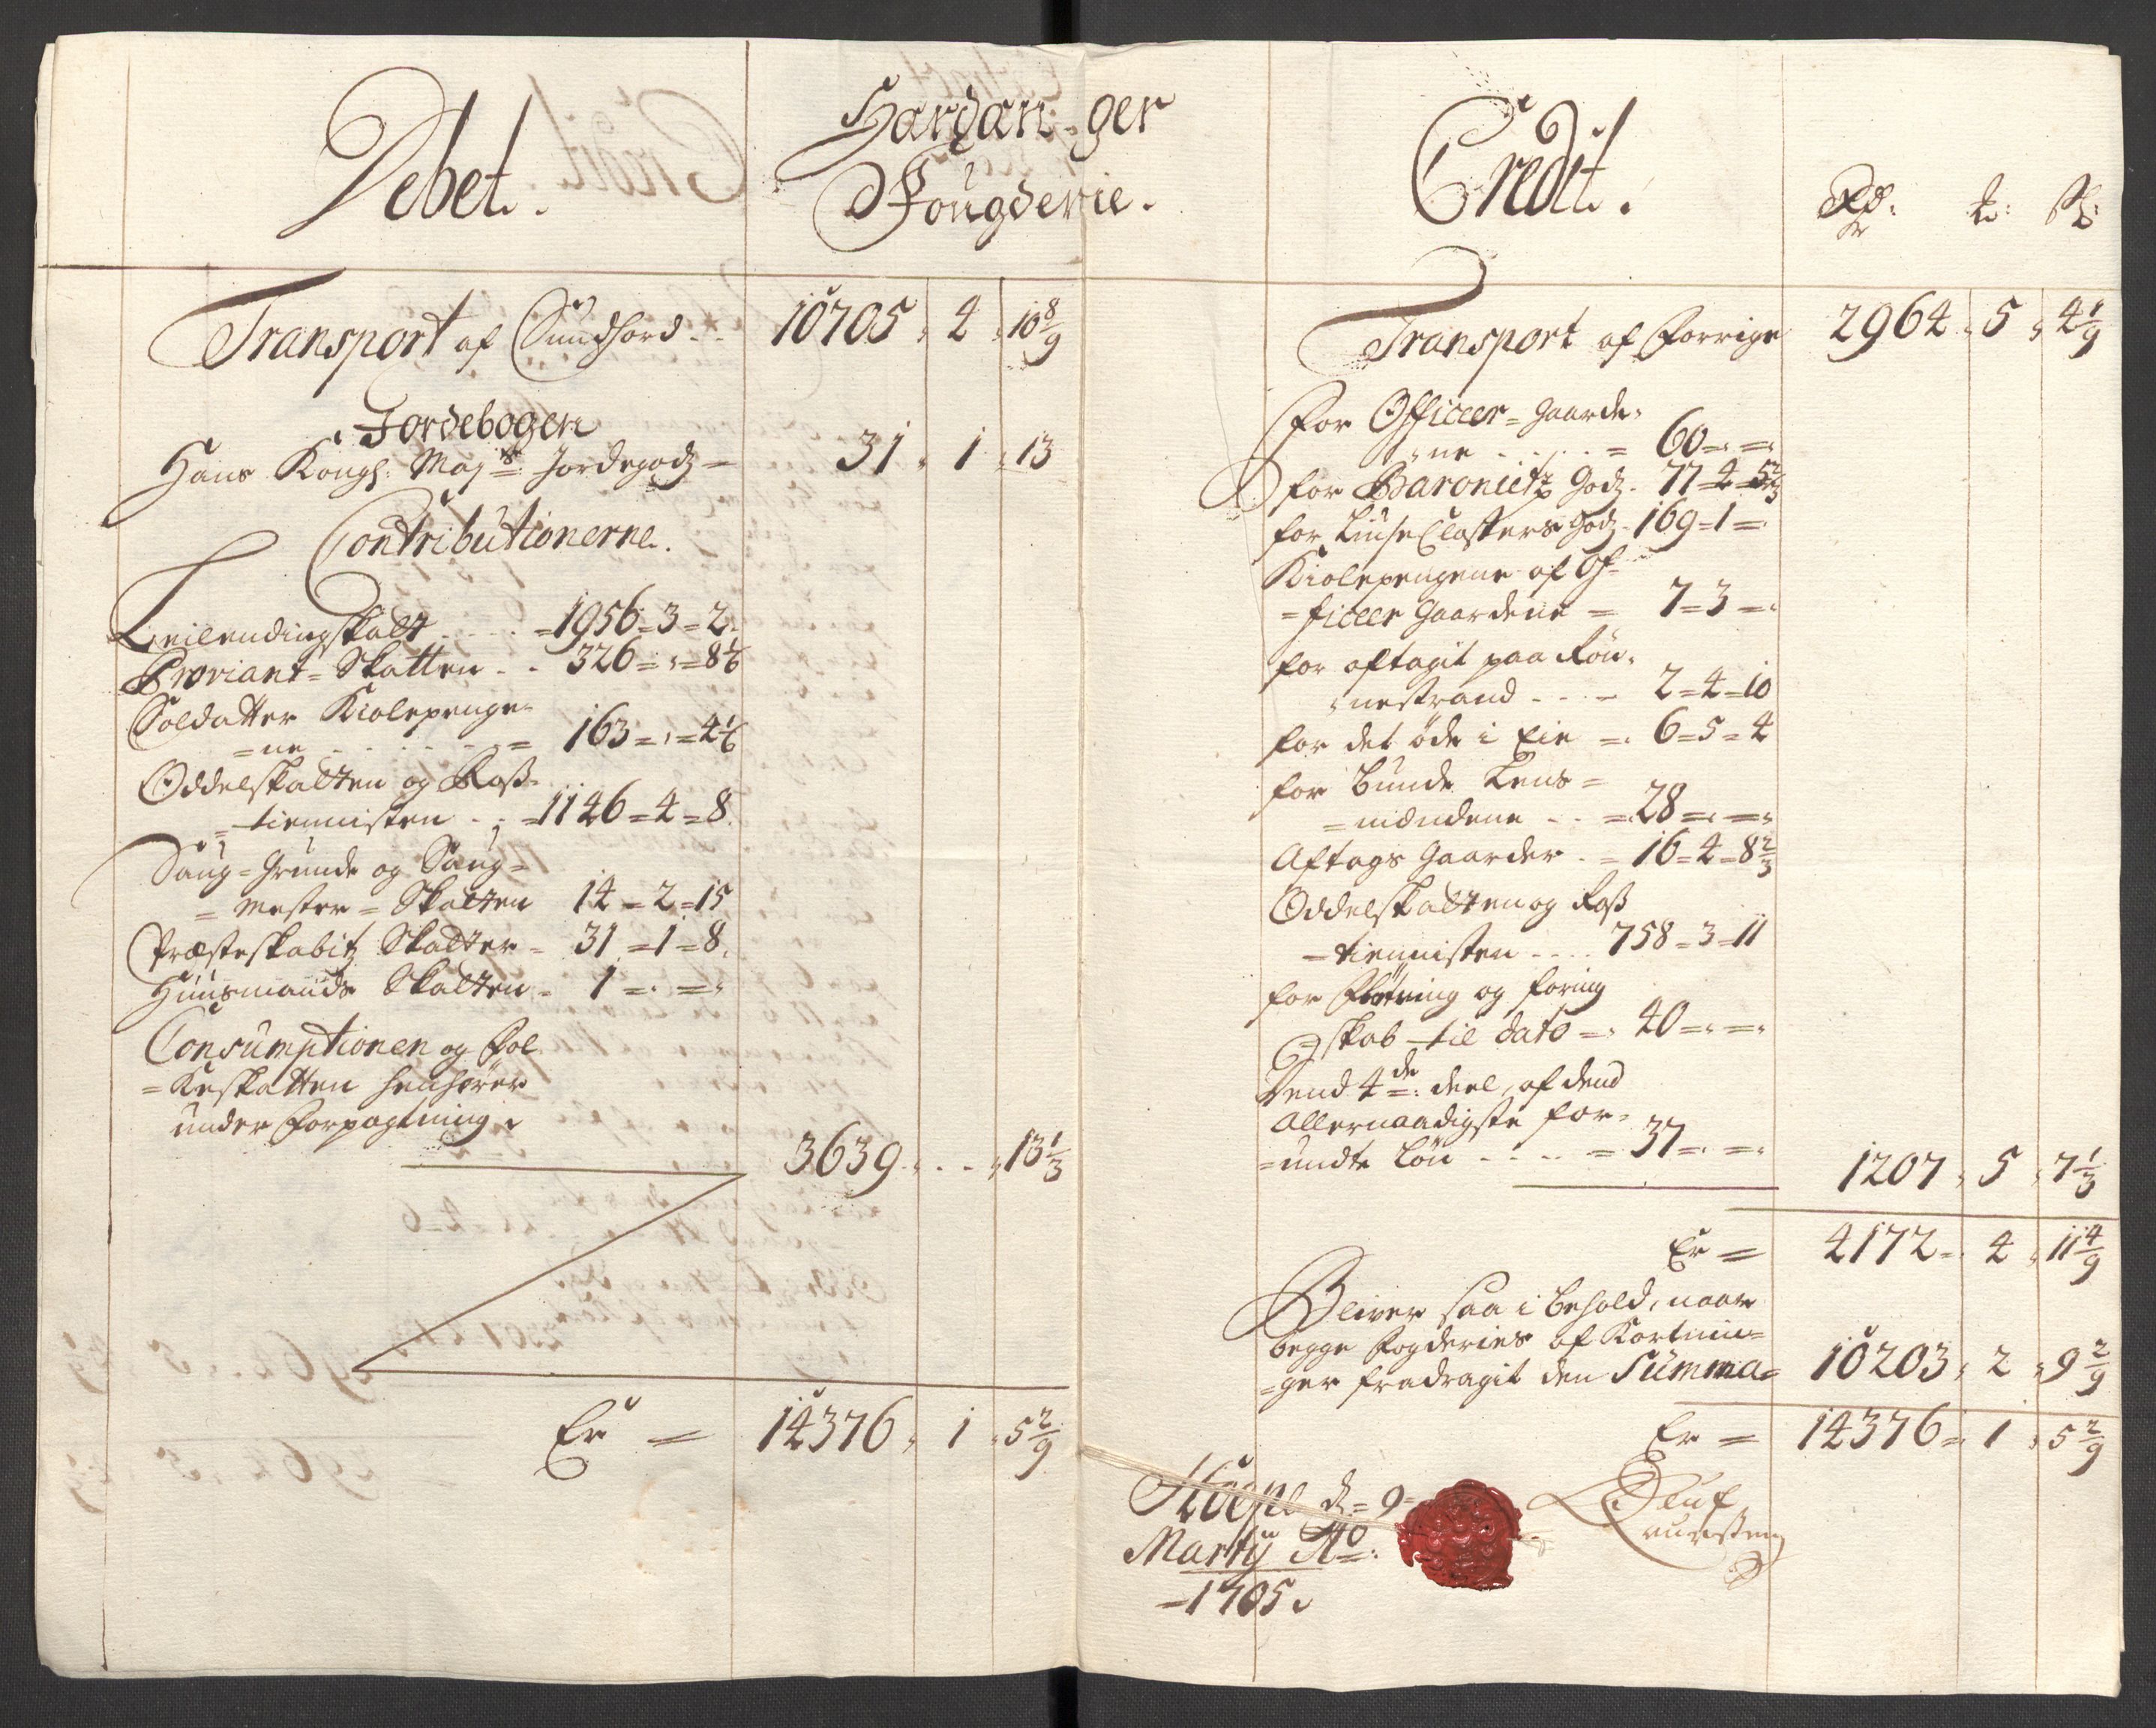 Debet.
Hardan=ger
Fougderie.
Transport af Sundhord.. 10705 " 4 " 10 8/9
Jordebogen
Hans Kongl: Mayts: Jordegodz – 31 " 1 " 13
Contributionerne.
Leilendingskatt . . . =1956=3=2
Proviant=Skatten . . 326="=8 1/6
Soldatter Kiolepenge=
=ne . . . . . = 163="=4 1/6
Oddelskatten og Ross=
=tiennisten . . =1146=4=8.
Saug=Grunde og Saug=
=mester=Skatten 14=2=15
Præsteskabitz Skatter = 31=1=8.
Huusmands Skatten = 1="="
Consumptionen og Fol=
=keskatten henhører
under Forpagtning.
3639 " . . " 13 1/3
Er = 14376 " 1 " 5 2/9
Credit.
Rdr: ℔: ß:
Transport af Forrige 2964 " 5 " 4 1/9
For Officer=gaarde=
=ne . . . . = 60="="
for Baroniets Godz . 77=4=5 2/3
for Liuse Closters Godz . 169=1="
Kiolepengene af Of=
=ficeer Gaardene = 7=3="
for aftagit paa Røn=
=nestrand . . . 2=4=10
for det øde i Eie = 6=5=4
for Bunde Lens=
=mændene . . = 28="="
Aftags Gaarder . = 16=4=8 2/3
Oddelskatten og Ross
=tiennisten . . . . 758=3=11
for Fløtning og føring
skab til dato =" 40="="
Dend 4de: deel, af dend
allernaadigste for=
=undte Løn . . . . = 37="="
1207 " 5 " 7 1/3
Er = 4172 " 4 " 11 4/9
Bliver saa i behold, naar
begge Fogderies afkortnin=
=ger fradragit den Summa= 10203 " 2 " 9 2/9
Er = 14376 = 1 " 5 2/9
d = 9=
Martÿ Ao:
=1705.